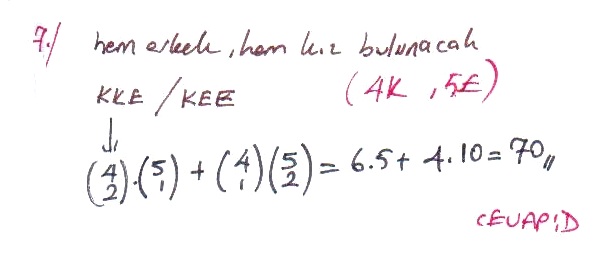 7./ hem erkek, hem kız bulunacak
KKE / KEE (4K, 5E)
↓
(4 2).(5 1) + (4 1)(5 2) = 6.5 + 4.10 = 70,,
CEVAP: D